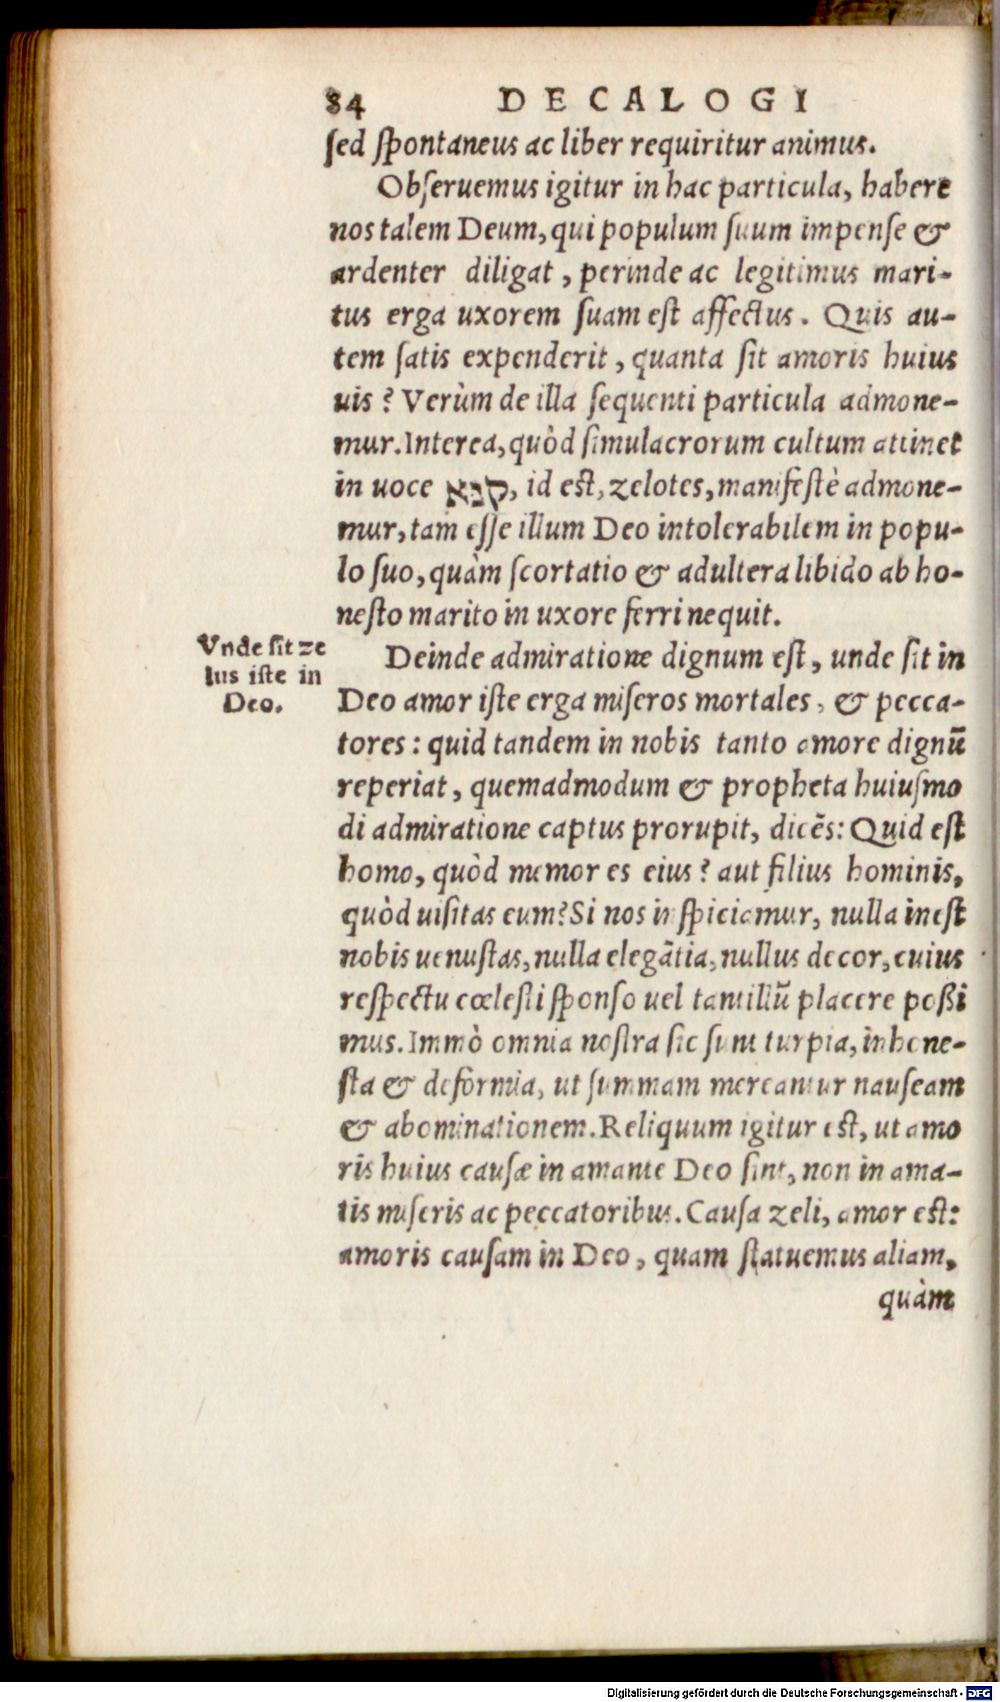 84 DECALOGI
ſed ſpontaneus ac liber requiritur animus.
Obſeruemus igitur in hac particula, habere
nos talem Deum, qui populum ſuum impenſe &
ardenter diligat, perinde ac legitimus mari-
tus erga uxorem ſuam eſt affectus. Quis au-
tem ſatis expenderit, quanta ſit amoris huius
uis? Verùm de illa ſequenti particula admone-
mur. Interea, quòd ſimulacrorum cultum attinet
in uoce קנא, id eſt, zelotes, manifeſtè admone-
mur, tam eſſe illum Deo intolerabilem in popu-
lo ſuo, quàm ſcortatio & adultera libido ab ho-
neſto marito in uxore ferri nequit.
Vnde ſit ze
lus iſte in
Deo.
Deinde admiratione dignum eſt, unde ſit in
Deo amor iſte erga miſeros mortales, & pecca-
tores: quid tandem in nobis tanto amore dignū
reperiat, quemadmodum & propheta huiuſmo
di admiratione captus prorupit, dicēs: Quid eſt
homo, quòd memor es eius? aut filius hominis,
quòd uiſitas eum? Si nos inſpiciamur, nulla ineſt
nobis uenuſtas, nulla elegātia, nullus decor, cuius
reſpectu cœleſti ſponſo uel tantillū placere poßi
mus. Immò omnia noſtra ſic ſunt turpia, inhone-
ſta & deformia, ut ſummam mereantur nauſeam
& abominationem. Reliquum igitur eſt, ut amo
ris huius cauſæ in amante Deo ſint, non in ama-
tis miſeris ac peccatoribus. Cauſa zeli, amor eſt:
amoris cauſam in Deo, quam ſtatuemus aliam,
quàm
Digitalisierung gefördert durch die Deutsche Forschungsgemeinschaft - DFG